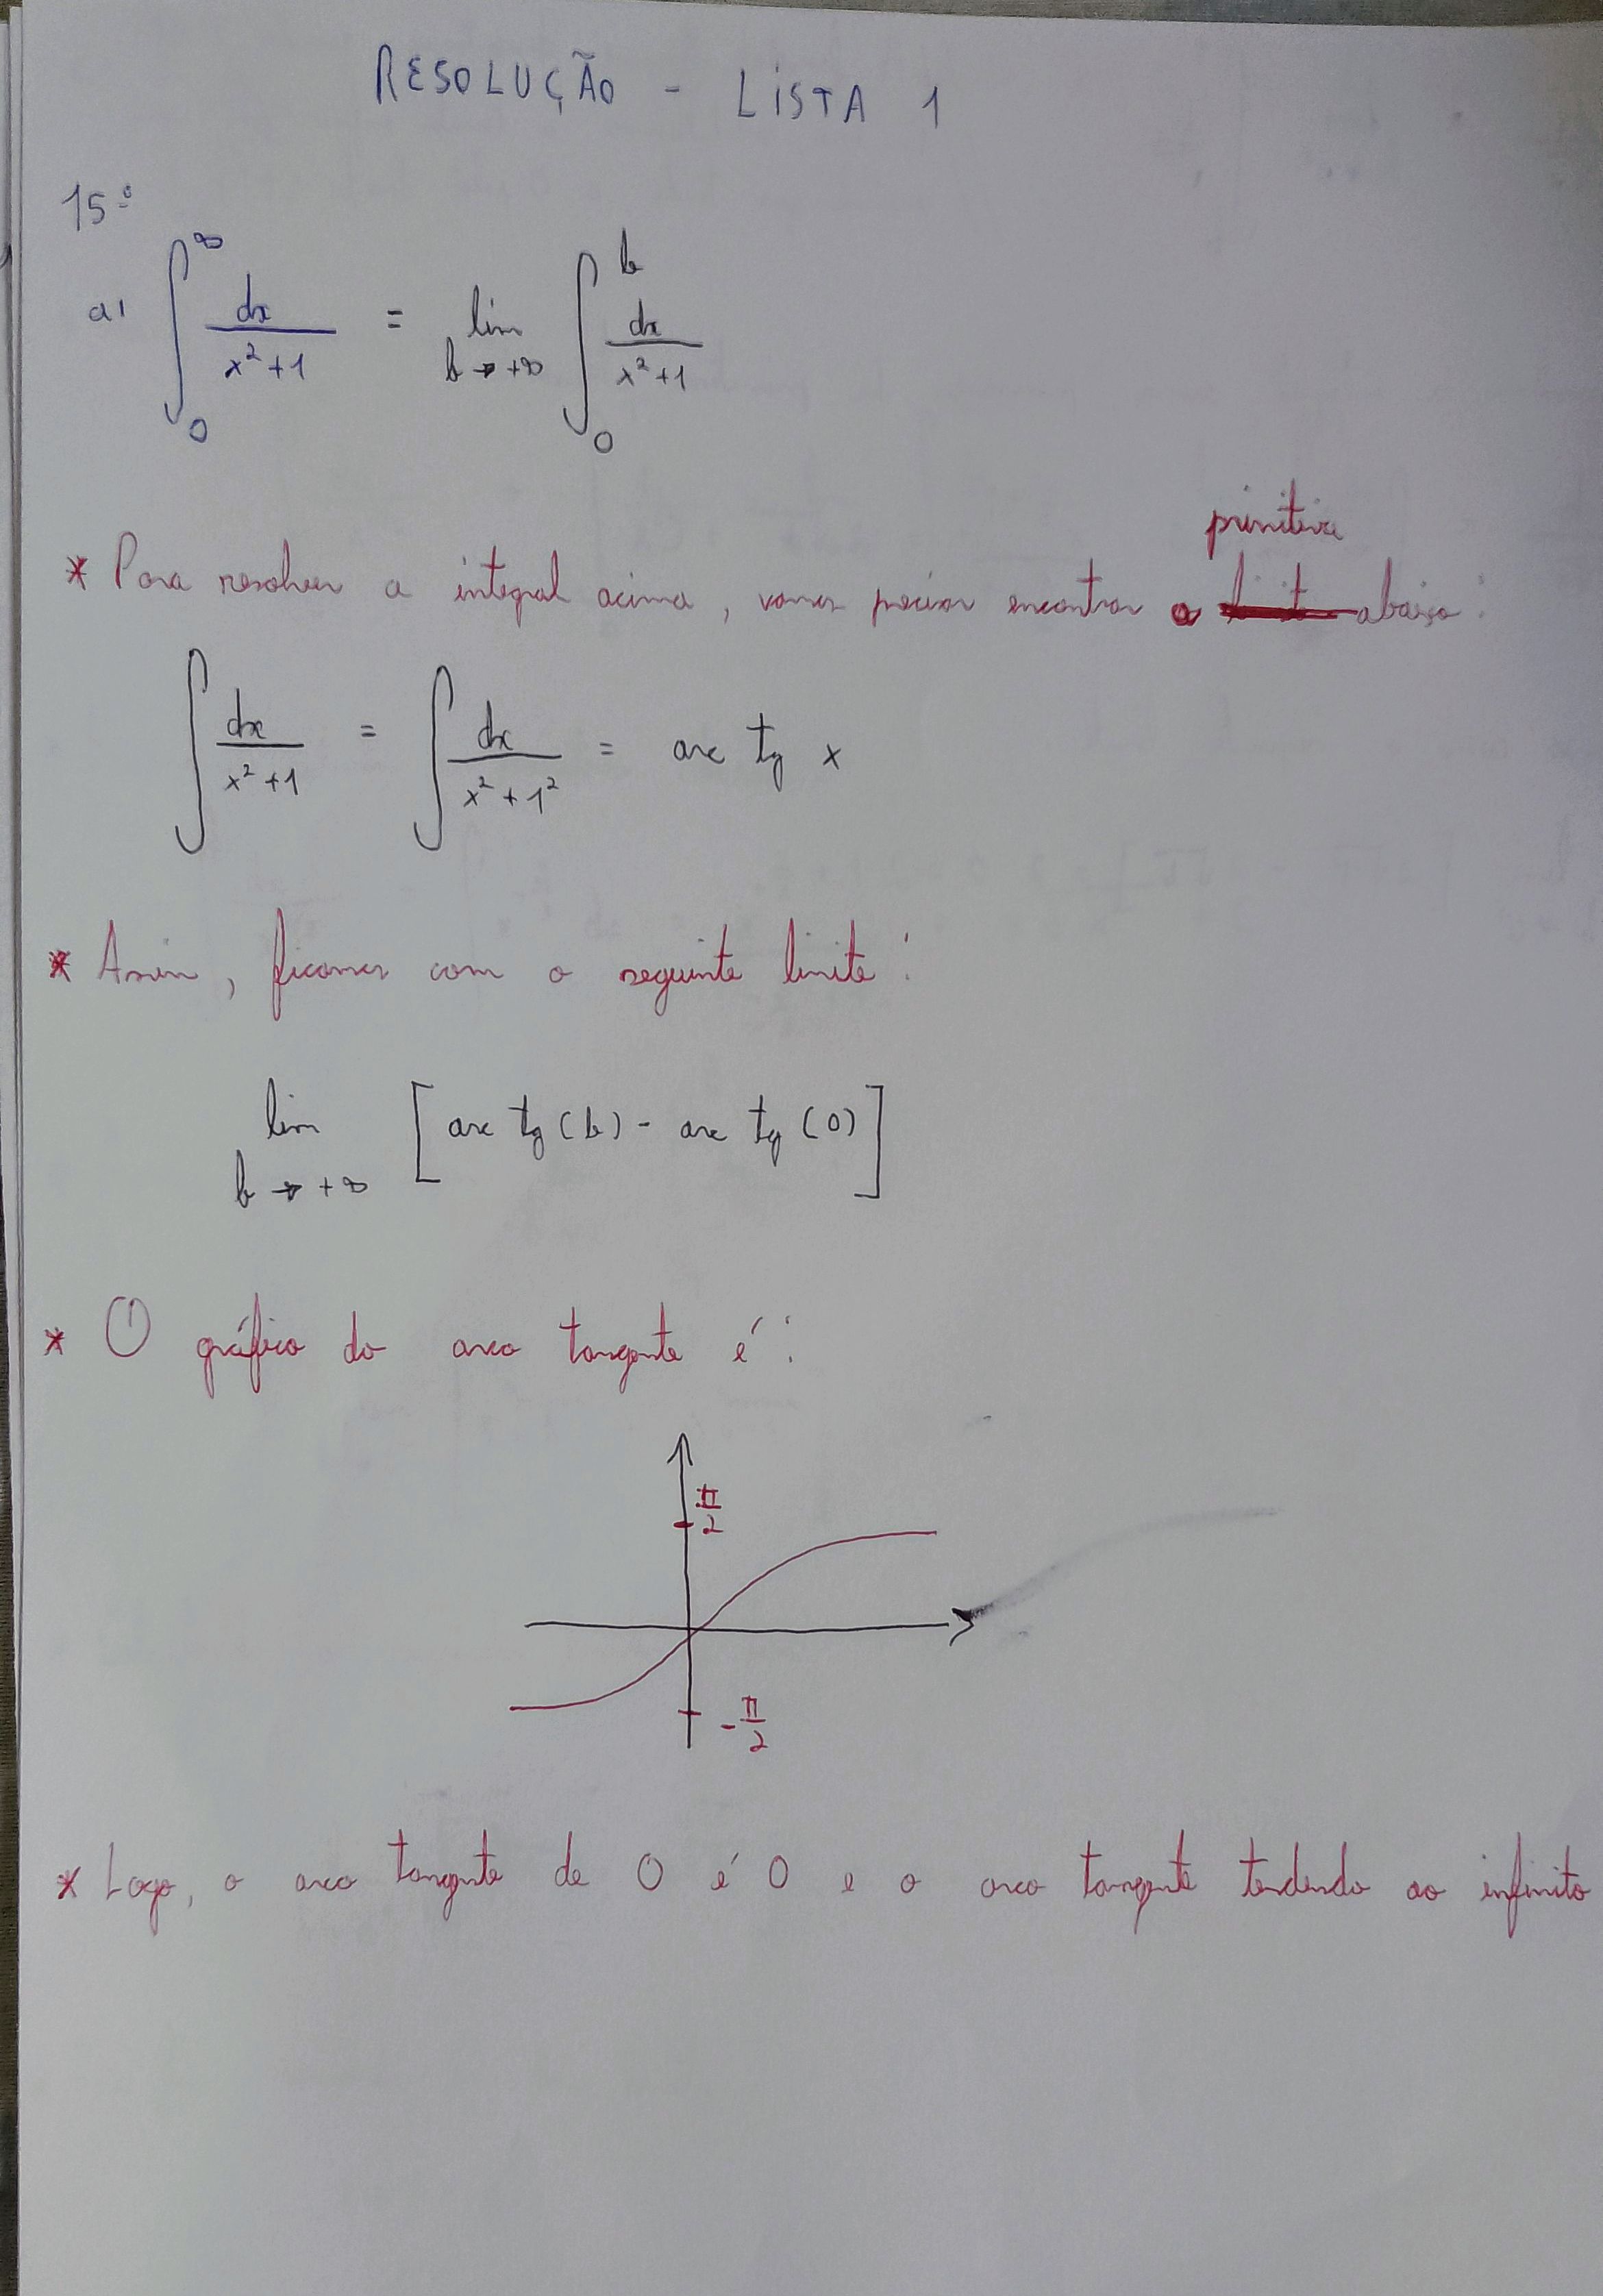 RESOLUÇÃO - LISTA 1
15º
a) ∫₀^∞ dx/(x²+1) = lim b→+∞ ∫₀^b dx/(x²+1)
primitiva
* Para resolver a integral acima, vamos precisar encontrar a abaixo:
∫ dx/(x²+1) = ∫ dx/(x²+1²) = arc tg x
* Assim, ficamos com o seguinte limite:
lim b→+∞ [arc tg(b) - arc tg(0)]
* O gráfico do arco tangente é:
π/2
-π/2
* Logo, o arco tangente de 0 é 0 e o arco tangente tendendo ao infinito